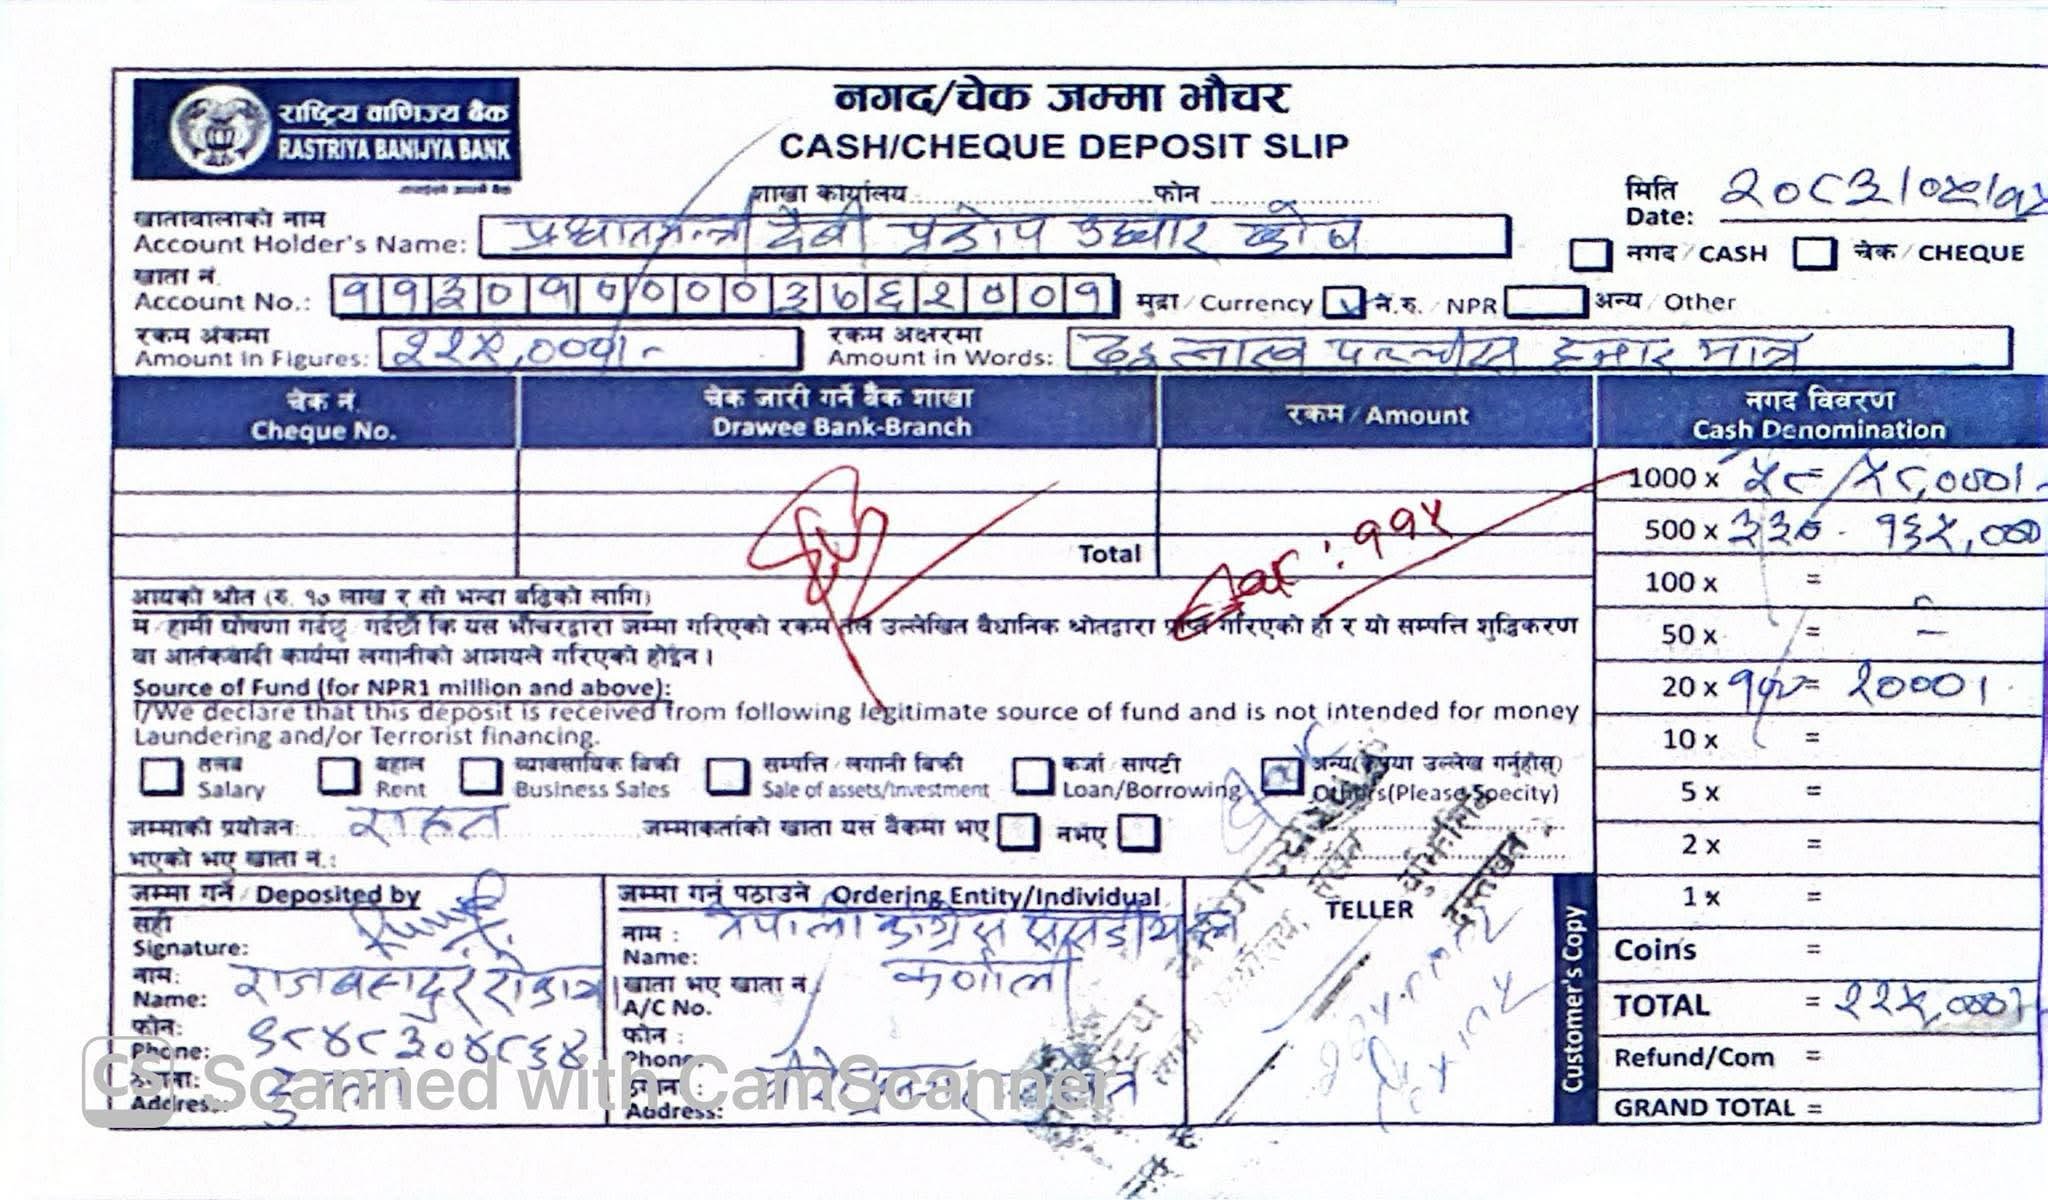 राष्ट्रिय वाणिज्य बैंक
RASTRIYA BANIJYA BANK
नगद/चेक जम्मा भौचर
CASH/CHEQUE DEPOSIT SLIP
शाखा कार्यालय फोन
मिति
Date: २०८३/०४/
खातावालाको नाम
Account Holder's Name: प्रधानमन्त्री दैवी प्रकोप उद्धार कोष
नगद/CASH चेक/CHEQUE
खाता नं.
Account No.: ११३०१००००३७६२००१
मुद्रा/Currency ने.रु./NPR अन्य/Other
रकम अंकमा
Amount in Figures: २२५,०००।-
रकम अक्षरमा
Amount in Words: दुइ लाख पच्चीस हजार मात्र
चेक नं.
Cheque No.
चेक जारी गर्ने बैंक शाखा
Drawee Bank-Branch
रकम/Amount
नगद विवरण
Cash Denomination
1000 x ५८ = ५८,०००।-
500 x ३३० - १६५,०००
Total
११५
100 x =
50 x = -
20 x १०० = २०००।
10 x =
5 x =
2 x =
1 x =
Coins =
TOTAL = २२५,०००।-
Refund/Com =
GRAND TOTAL =
आयको श्रोत (रु. १० लाख र सो भन्दा बढिको लागि)
म/हामी घोषणा गर्दछु/गर्दछौं कि यस भौचरद्वारा जम्मा गरिएको रकम तल उल्लेखित वैधानिक श्रोतद्वारा प्राप्त गरिएको हो र यो सम्पत्ति शुद्धिकरण
वा आतंकवादी कार्यमा लगानीको आशयले गरिएको होईन।
Source of Fund (for NPR1 million and above):
I/We declare that this deposit is received from following legitimate source of fund and is not intended for money
Laundering and/or Terrorist financing.
तलब
Salary
बहाल
Rent
व्यावसायिक बिक्री
Business Sales
सम्पत्ति/लगानी बिक्री
Sale of assets/Investment
कर्जा/सापटी
Loan/Borrowing
अन्य(कृपया उल्लेख गर्नुहोस्)
Others(Please Specity)
जम्माको प्रयोजन: राहत
जम्माकर्ताको खाता यस बैंकमा भए नभए
भएको भए खाता नं.:
जम्मा गर्ने/Deposited by
सही
Signature:
नाम:
Name: राजबहादुर रोकाय
फोन:
Phone: ९८४८३०४८६४
ठेगाना:
Address: हुम्ला
जम्मा गर्न पठाउने Ordering Entity/Individual
नाम :
Name: नेपाली कांग्रेस संसदीय दल
कर्णाली
खाता भए खाता नं.
A/C No.
फोन :
Phone:
ठेगाना :
Address:
TELLER
दस्तखत
Customer's Copy
CS Scanned with CamScanner